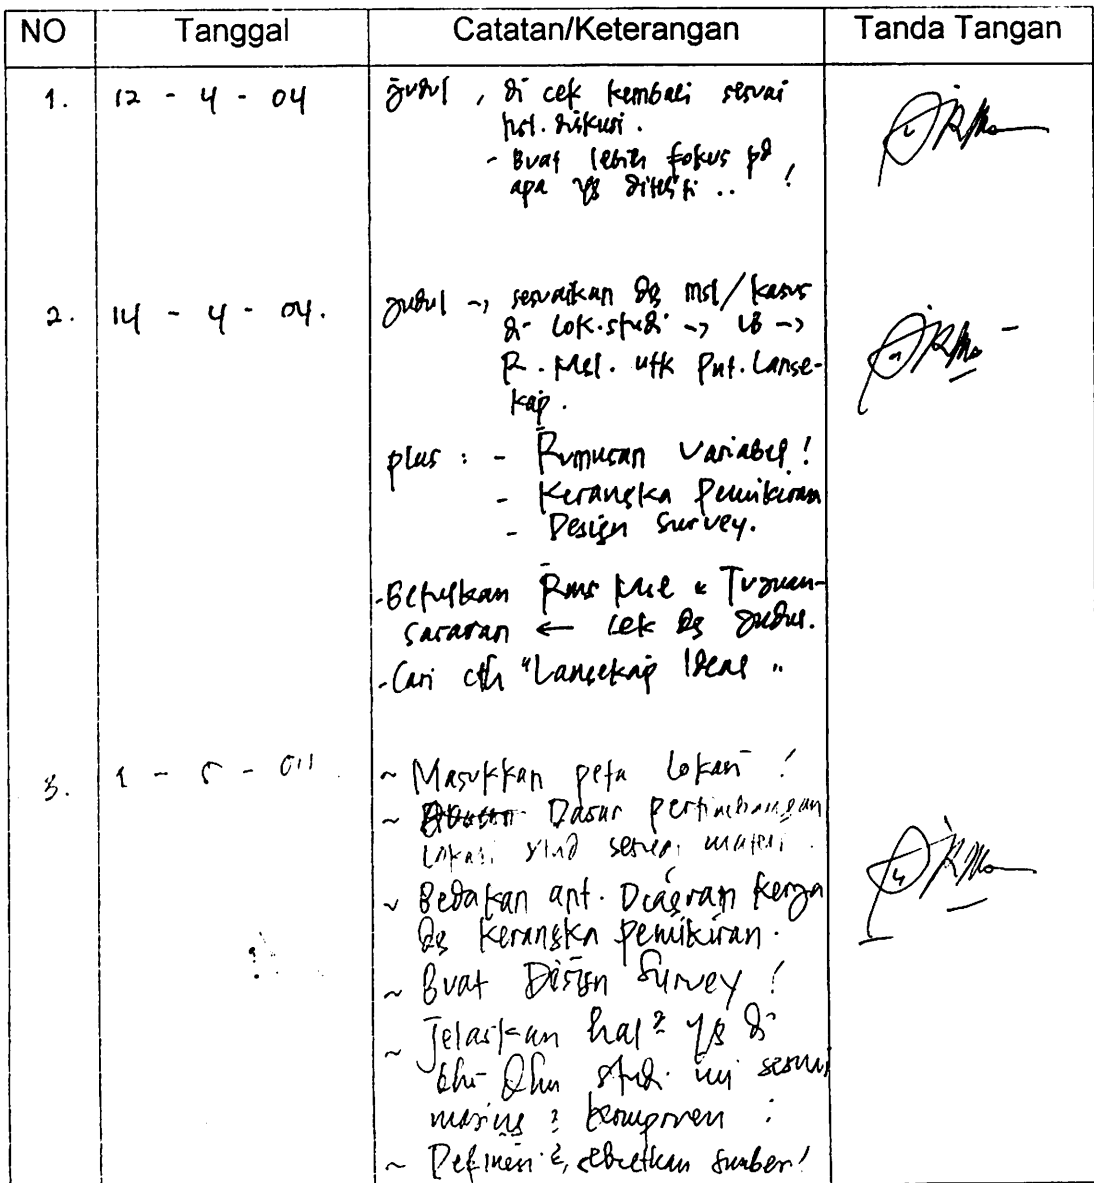 NO Tanggal Catatan/Keterangan Tanda Tangan
1. 12 - 4 - 04 Judul, di cek kembali sesuai
hsl. diskusi.
- Buat lebih fokus pd
apa yg diteliti .. !
2. 14 - 4 - 04. Judul -> sesuaikan dg msl/kasus
di lok.studi -> LB ->
R. Msl. utk Pnt. Lanse-
kap.
plus : - Rumusan Variabel!
- Kerangka Pemikiran
- Design Survey.
- Betulkan Rms Msl & Tujuan-
sasaran <- cek dg Judul.
- Cari cth "Lansekap Ideal"
3. 1 - 5 - 04 ~ Masukkan peta lokasi !
~ Dasar pertimbangan
lokasi studi sesuai materi.
~ Bedakan ant. Diagram Kerja
dg Kerangka Pemikiran.
~ Buat Disign Survey !
~ Jelaskan hal2 yg di
studi ini sesuai
masing2 komponen :
~ Definisi2, sebutkan sumber!